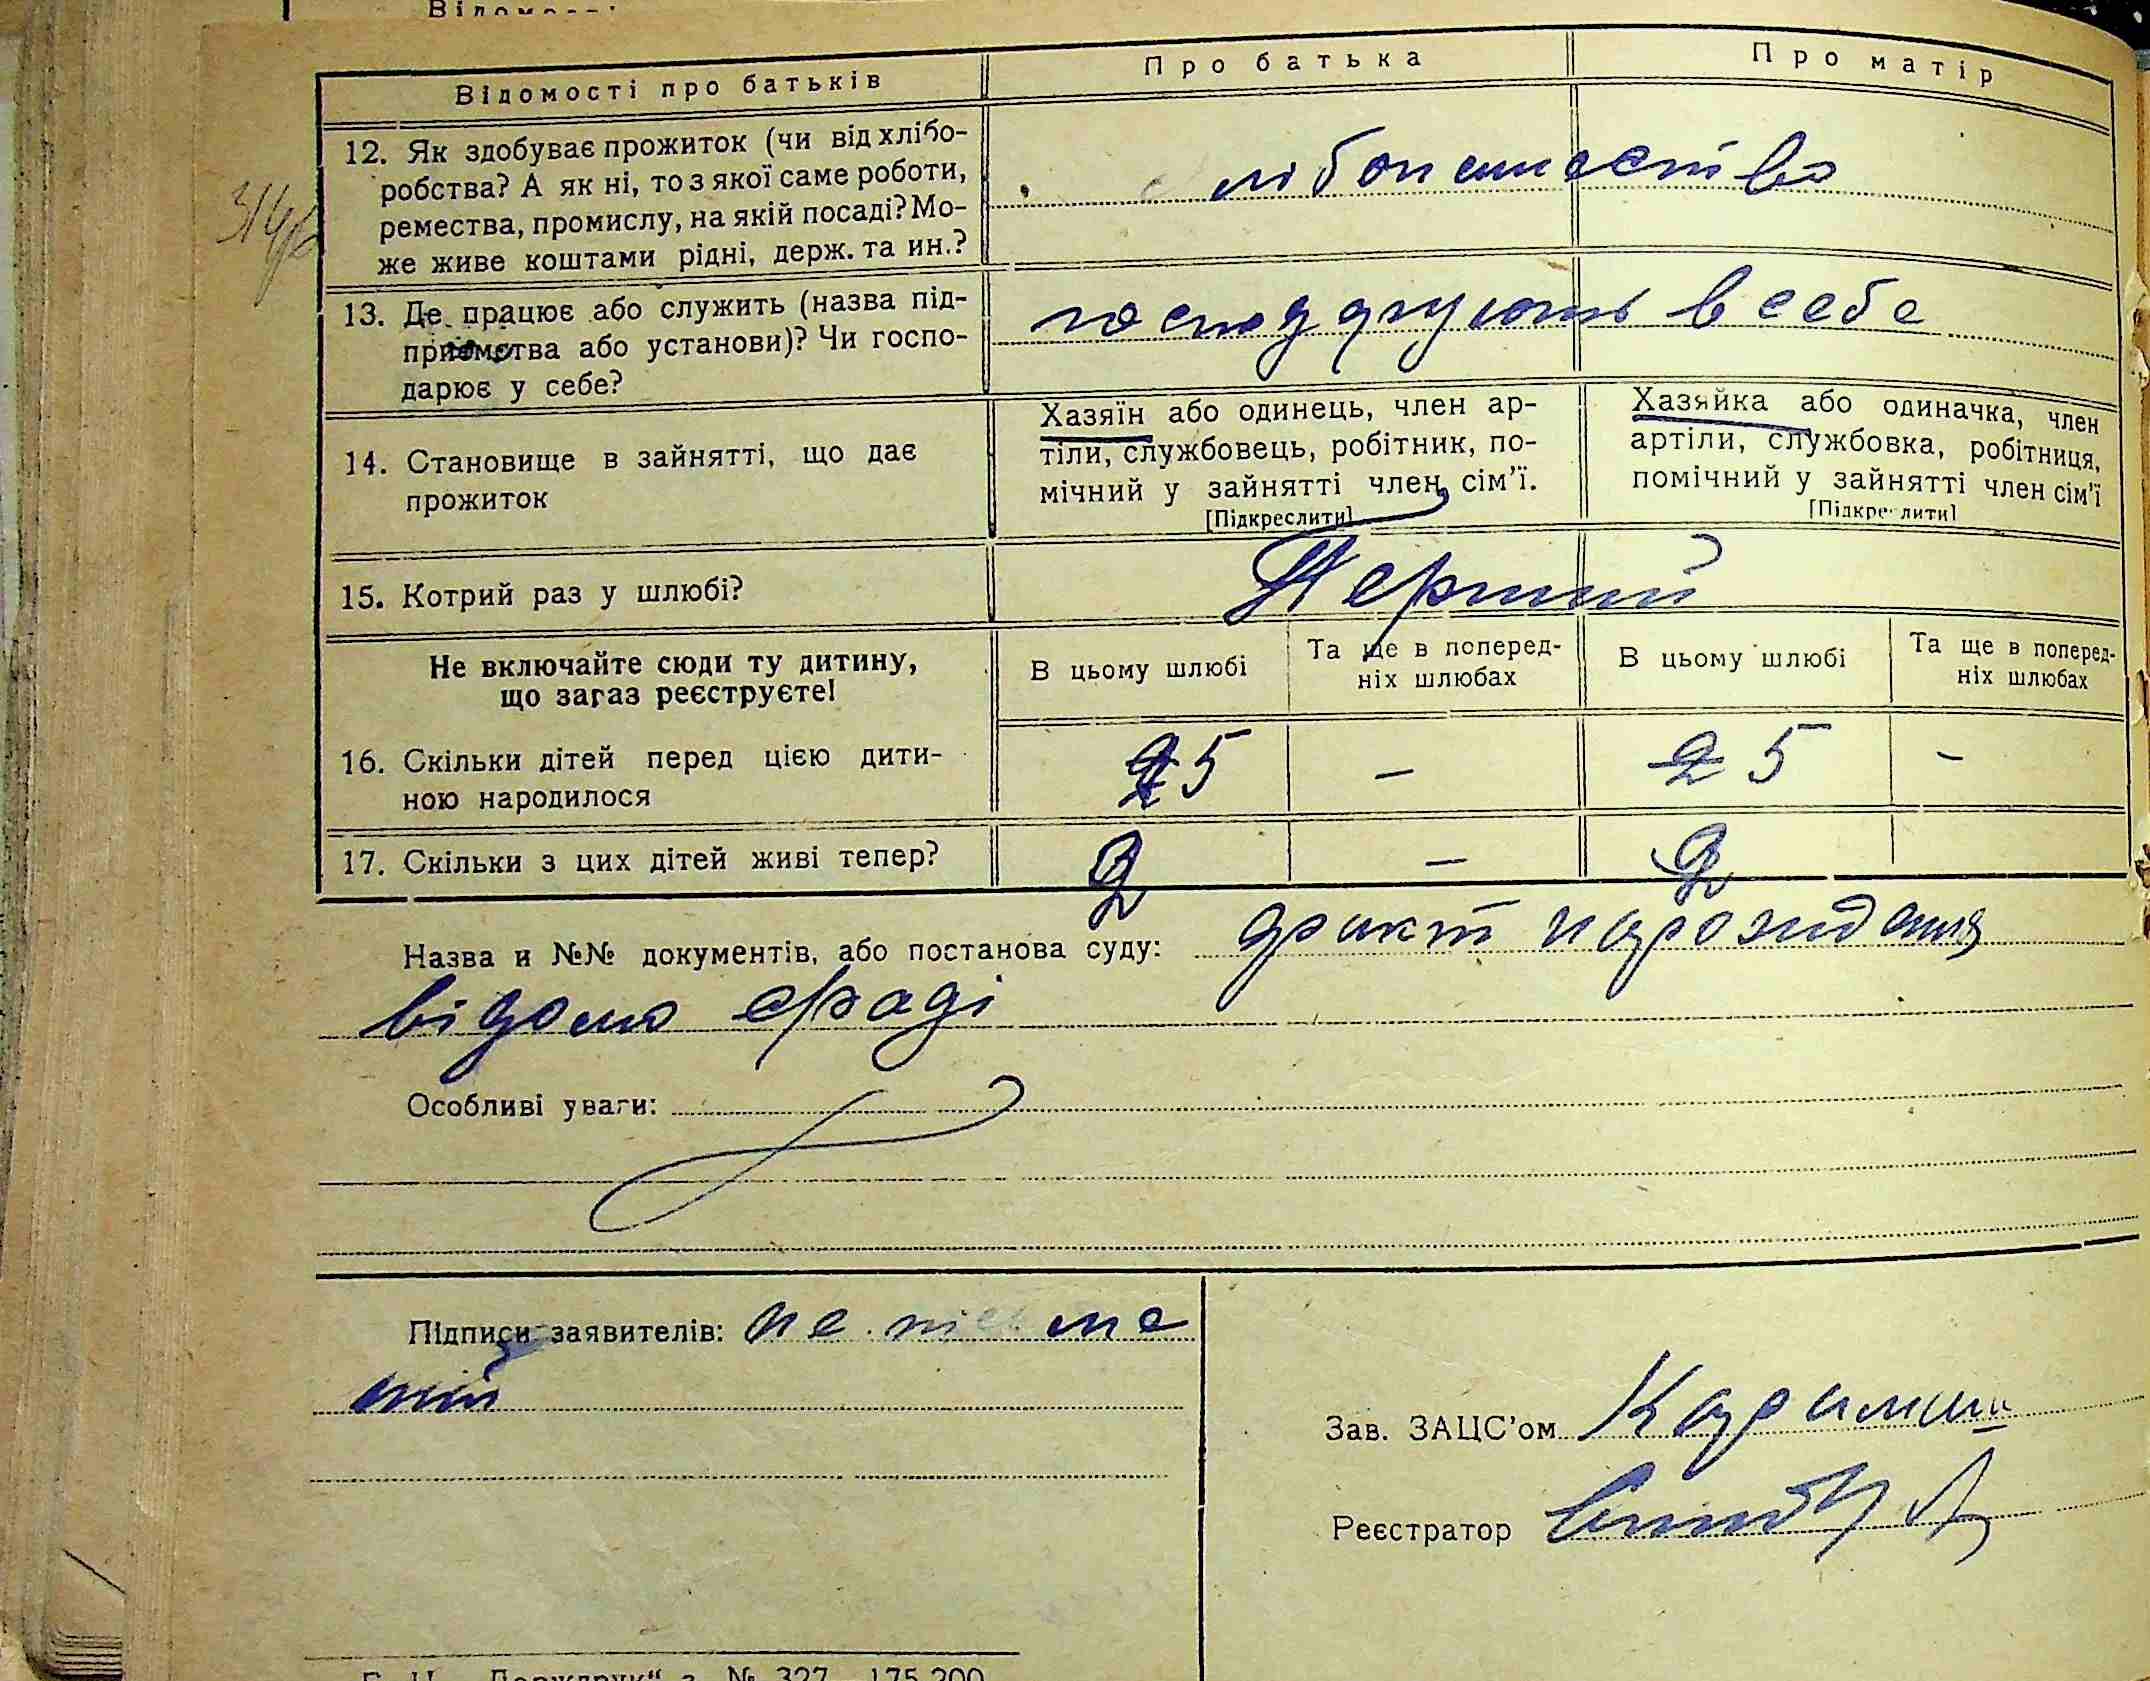 Відомості про батьків
Про батька
Про матір
12. Як здобуває прожиток (чи від хлібо-
робства? А як ні, то з якої саме роботи,
ремества, промислу, на якій посаді? Мо-
же живе коштами рідні, держ. та ин.?
13. Де працює або служить (назва під-
приємства або установи)? Чи госпо-
дарює у себе?
господарують в себе
14. Становище в зайнятті, що дає
прожиток
Хазяїн або одинець, член ар-
тіли, службовець, робітник, по-
мічний у зайнятті член сім'ї.
[Підкреслити]
Хазяйка або одиначка, член
артіли, службовка, робітниця,
помічний у зайнятті член сім'ї
[Підкреслити]
15. Котрий раз у шлюбі?
Перший
Не включайте сюди ту дитину,
що загаз реєструєте!
В цьому шлюбі
Та ще в поперед-
ніх шлюбах
В цьому шлюбі
Та ще в поперед-
ніх шлюбах
16. Скільки дітей перед цією дити-
ною народилося
5 — 2 5 -
17. Скільки з цих дітей живі тепер?
2 — 2
Назва и №№ документів, або постанова суду: факт народження
відомо сраді
Особливі уваги:
Підписи заявителів: не письме
ний
Зав. ЗАЦС'ом
Реєстратор
№ 327 175.200
314